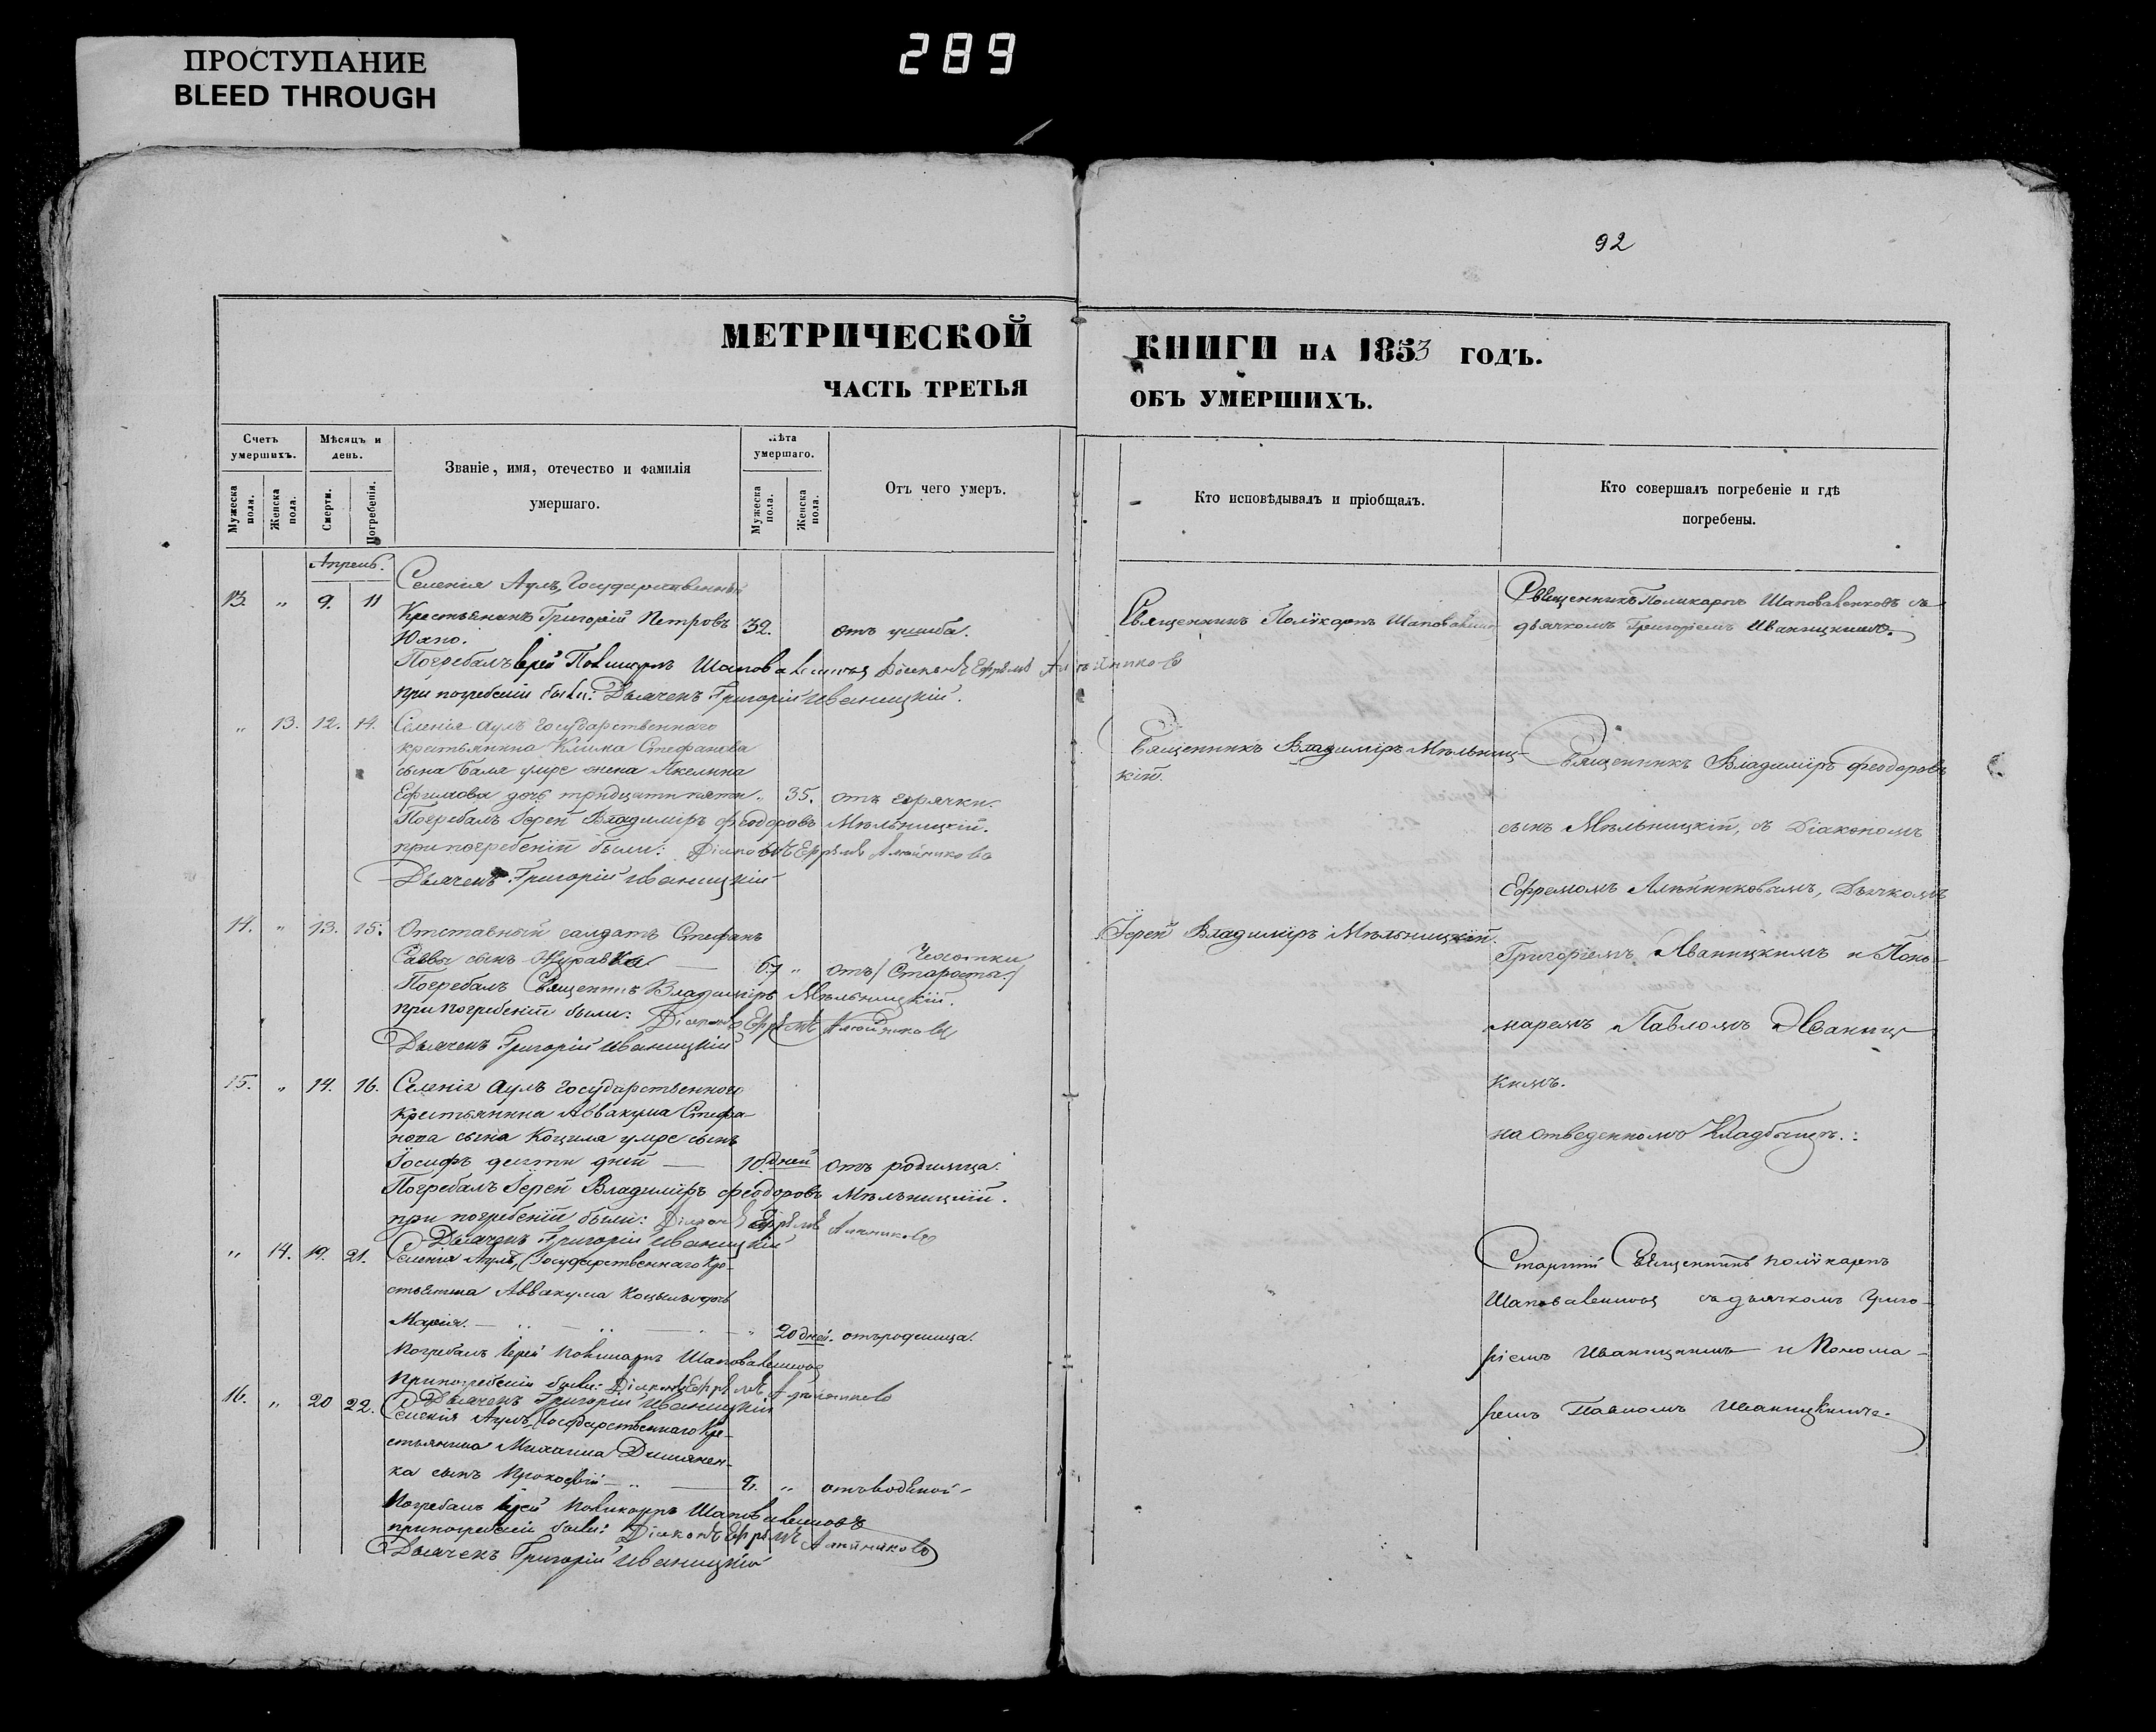 ПРОСТУПАНИЕ
BLEED THROUGH
289
92
МЕТРИЧЕСКОЙ
ЧАСТЬ ТРЕТЬЯ
Счетъ умершихъ.
Мѣсяцъ и день.
Званіе, имя, отечество и фамилія
умершаго.
Лѣта умершаго.
Отъ чего умеръ.
Мужеска пола.
Женска пола.
Смерти.
Погребенія.
Мужеска пола.
Женска пола.
Апрель.
Селенія Аулъ, Государственный
13. " 9. 11
Крестьянинъ Григорій Петровъ 32. отъ ушиба.
Погребалъ Іерей Поликарпъ Шаповаленковъ Діаконъ Ефремъ
при погребеніи были: Дьячекъ Григорій Иваницкій.
" 13. 12. 14. Селенія Аулъ Государственнаго
крестьянина Клима Стефанова
сына Баля умре жена Акелина
Ефимова дочь тридцати пяти " 35. отъ горячки.
Погребалъ Іерей Владиміръ Феодоровъ Мѣльницкій.
при погребеніи были: Діаконъ Ефремъ Алейниковъ
Дьячекъ Григорій Иваницкій
14. " 13. 15. Отставный салдатъ Стефанъ
Саввы сынъ Журавка — 67 " отъ /Старости/ Чахотки
Погребалъ Священникъ Владиміръ Мѣльницкій.
при погребеніи были: Діаконъ Ефремъ Алейниковъ
Дьячекъ Григорій Иваницкій
15. " 14. 16. Селенія Аулъ Государственного
крестьянина Аввакума Стефа-
нова сына Коцила умре сынъ
Іосифъ десяти дней — 10 дней отъ родимца.
Погребалъ Іерей Владиміръ Феодоровъ Мѣльницкій.
при погребеніи были: Діаконъ Ефремъ Алейниковъ
Дьячекъ Григорій Иваницкій
" 14. 19. 21. Селенія Аулъ, Государственнаго Кре-
стьянина Аввакума дочь
Марія. — 20 дней. отъ родимца.
Погребалъ Іерей Поликарпъ Шаповаленковъ
При погребеніи были: Діаконъ Ефремъ Алейниковъ
Дьячекъ Григорій Иваницкій
16. " 20 22. Селенія Аулъ, Государственнаго Кре-
стьянина Михаила
ка сынъ Прокофій — " отъ водяной
Погребалъ Іерей Поликарпъ Шаповаленковъ
при погребеніи были: Діаконъ Ефремъ Алейниковъ
Дьячекъ Григорій Иваницкій
КНИГИ НА 1853 ГОДЪ.
ОБЪ УМЕРШИХЪ.
Кто исповѣдывалъ и пріобщалъ.
Кто совершалъ погребеніе и гдѣ
погребены.
Священникъ Поликарпъ Шаповаленко
Священникъ Владиміръ Мѣльниц-
кій.
Іерей Владиміръ Мѣльницкій.
Священникъ Поликарпъ Шаповаленковъ съ
дьячкомъ Григоріемъ Иваницкимъ.
Священникъ Владиміръ Феодоровъ
сынъ Мѣльницкій, съ Діакономъ
Ефремомъ Алейниковымъ, Дьячкомъ
Григоріемъ Иваницкимъ и Поно-
маремъ Павломъ Иваниц-
кимъ.
на отведенномъ Кладбищѣ.:
Старшій Священникъ Поликарпъ
Шаповаленковъ съ дьячкомъ Григо-
ріемъ Иваницкимъ и Понома-
ремъ Павломъ Иваницкимъ.